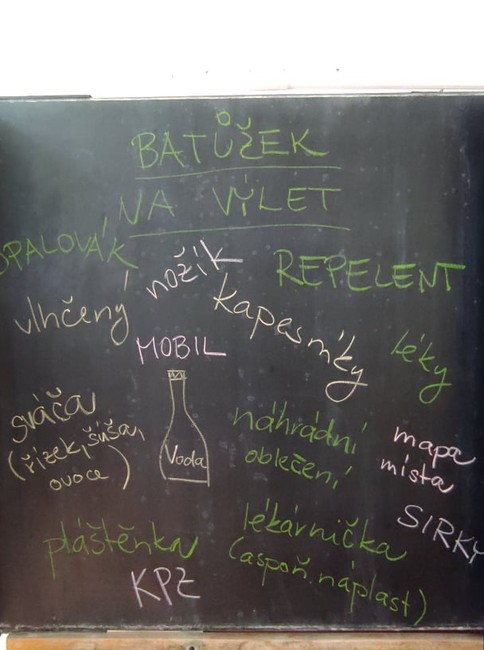 BATŮŽEK
NA VÝLET
OPALOVÁK
nožík
REPELENT
vlhčený
kapesníky
MOBIL
léky
sváča
(řízek, šušan,
ovoce)
Voda
náhrádní
oblečení
mapa
místa
SIRKY
pláštěnka
lékárnička
(aspoň náplast)
KPZ